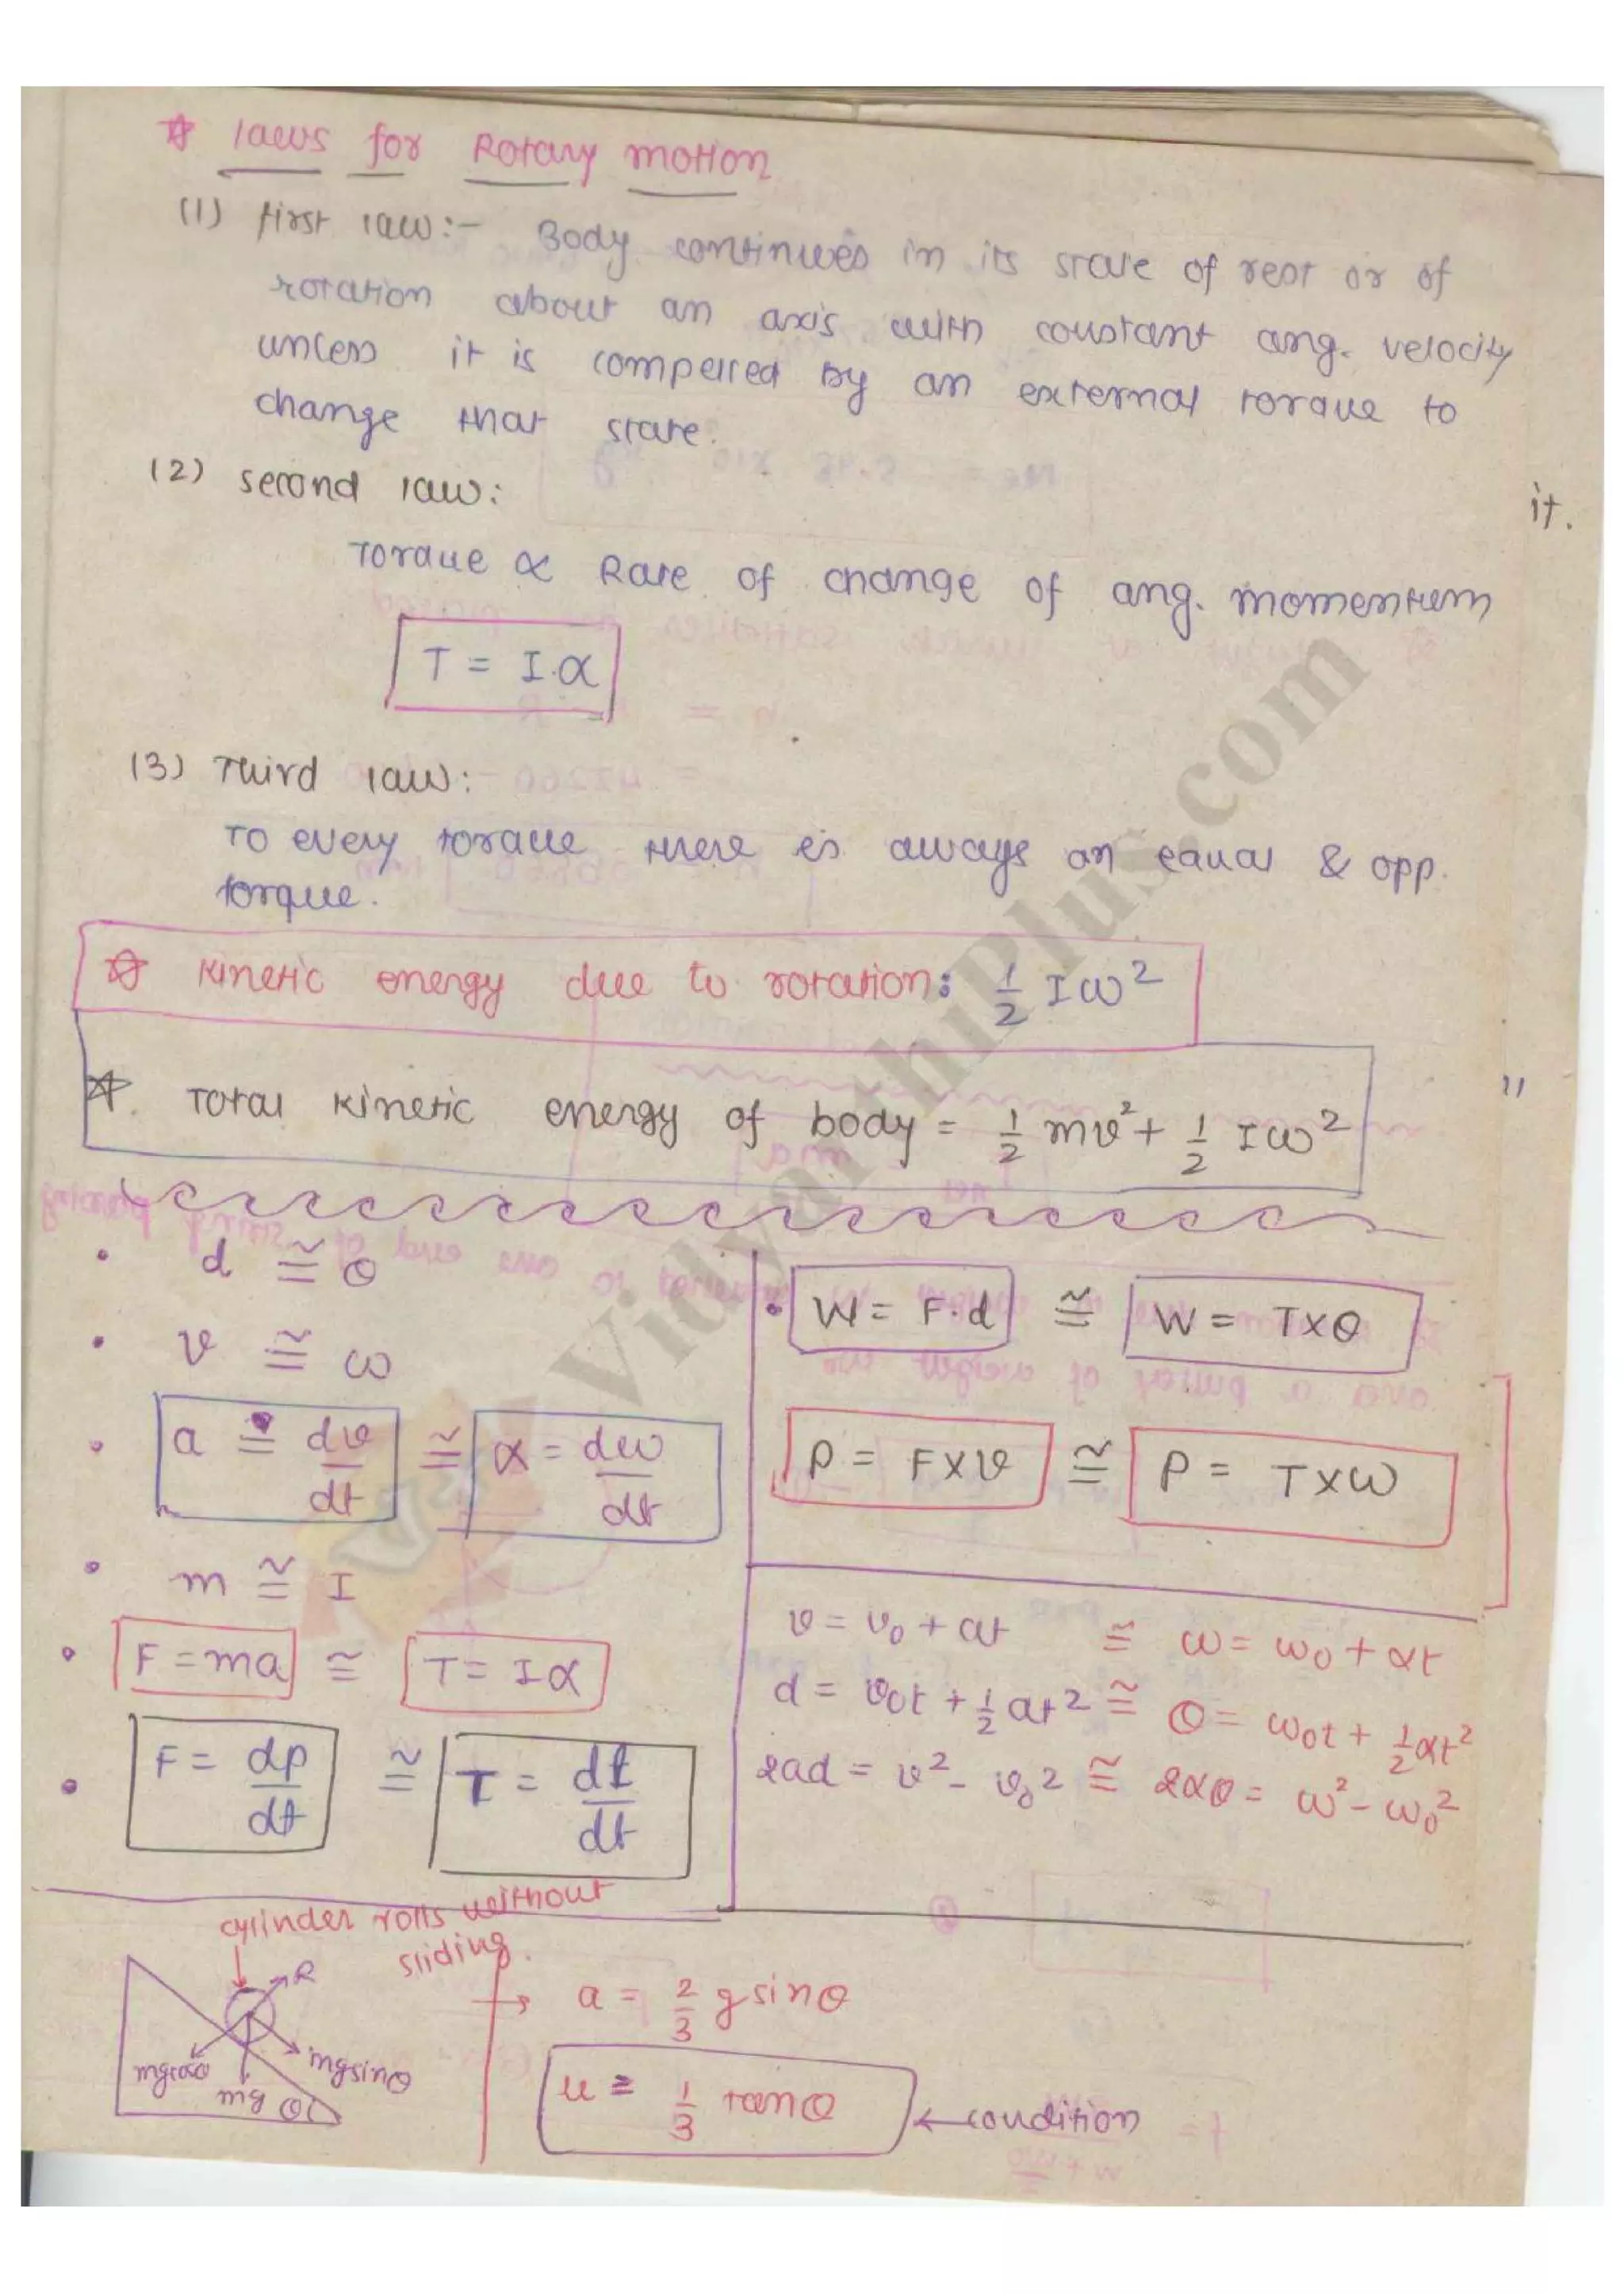 ☆ Laws for Rotary motion
(1) first law:- Body continues in its state of rest or of
rotation about an axis with constant ang. velocity
unless it is compelled by an external torque to
change that state.
(2) second law:
it.
Torque ∝ Rate of change of ang. momentum
T = I.α
(3) Third law:
To every torque there is always an equal & opp.
torque.
☆ Kinetic energy due to rotation: 1/2 Iω²
☆. Total Kinetic energy of body = 1/2 mv² + 1/2 Iω²
"
• d ≅ θ
• v ≅ ω
• a = dv/dt ≅ α = dω/dt
• m ≅ I
• F = ma ≅ T = Iα
• F = dp/dt ≅ T = dL/dt
• W = F.d ≅ W = T×θ
P = F×v ≅ P = T×ω
v = v₀ + at ≅ ω = ω₀ + αt
d = v₀t + 1/2 at² ≅ θ = ω₀t + 1/2 αt²
2ad = v² - v₀² ≅ 2αθ = ω² - ω₀²
cylinder rolls without
sliding.
R
mgcosθ
mg
mgsinθ
θ
→ a = 2/3 g sinθ
u ≥ 1/3 tanθ ← condition
VidyarthiPlus.com